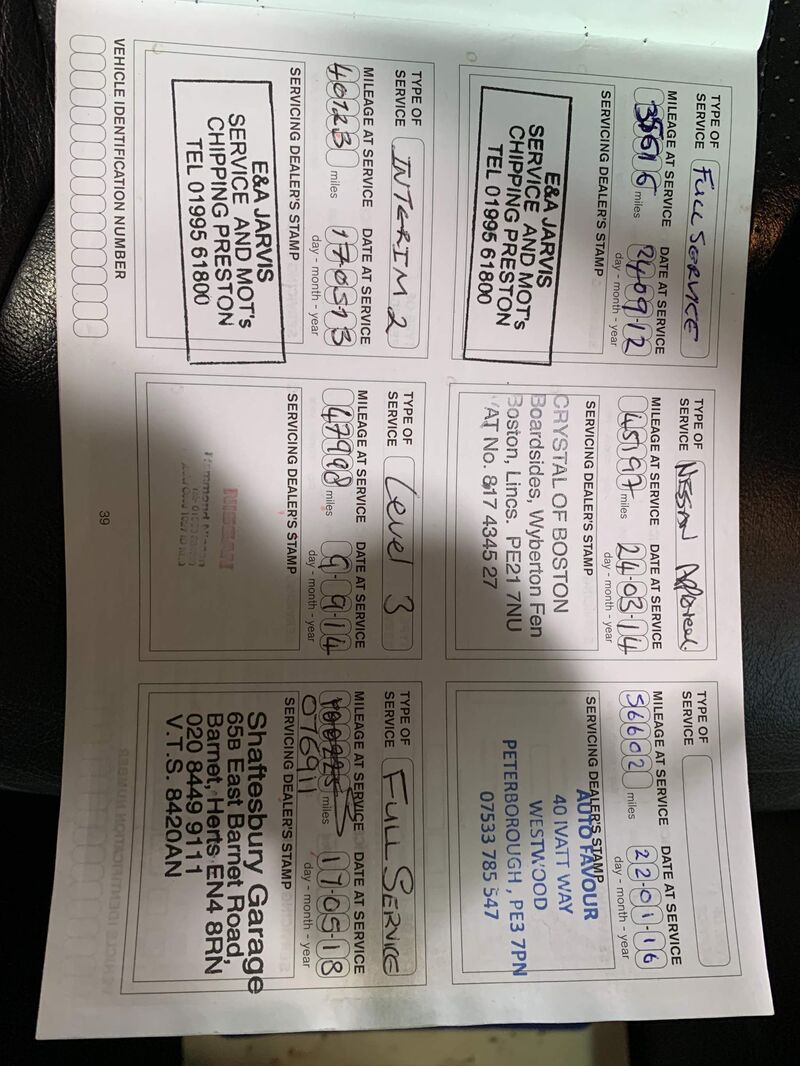 TYPE OF SERVICE FULL SERVICE
MILEAGE AT SERVICE DATE AT SERVICE
miles 24-09-12
day - month - year
SERVICING DEALER'S STAMP
E&A JARVIS
SERVICE AND MOT's
CHIPPING PRESTON
TEL 01995 61800
TYPE OF SERVICE NISSAN
MILEAGE AT SERVICE DATE AT SERVICE
45197 miles 24-03-14
day - month - year
SERVICING DEALER'S STAMP
CRYSTAL OF BOSTON
Boardsides, Wyberton Fen
Boston, Lincs. PE21 7NU
VAT No. 817 4345 27
TYPE OF SERVICE
MILEAGE AT SERVICE DATE AT SERVICE
56602 miles 22-01-16
day - month - year
SERVICING DEALER'S STAMP
AUTO FAVOUR
40 IVATT WAY
WESTWOOD
PETERBOROUGH, PE3 7PN
07533 785 547
TYPE OF SERVICE INTERIM 2
MILEAGE AT SERVICE DATE AT SERVICE
40123 miles 170513
day - month - year
SERVICING DEALER'S STAMP
E&A JARVIS
SERVICE AND MOT's
CHIPPING PRESTON
TEL 01995 61800
TYPE OF SERVICE Level 3
MILEAGE AT SERVICE DATE AT SERVICE
47998 miles 9-9-14
day - month - year
SERVICING DEALER'S STAMP
NISSAN
Hammond Nissan
TYPE OF SERVICE FULL SERVICE
MILEAGE AT SERVICE DATE AT SERVICE
miles 17-05-18
076911 day - month - year
SERVICING DEALER'S STAMP
Shaftesbury Garage
65B East Barnet Road,
Barnet, Herts EN4 8RN
020 8449 9111
V.T.S. 8420AN
VEHICLE IDENTIFICATION NUMBER
39